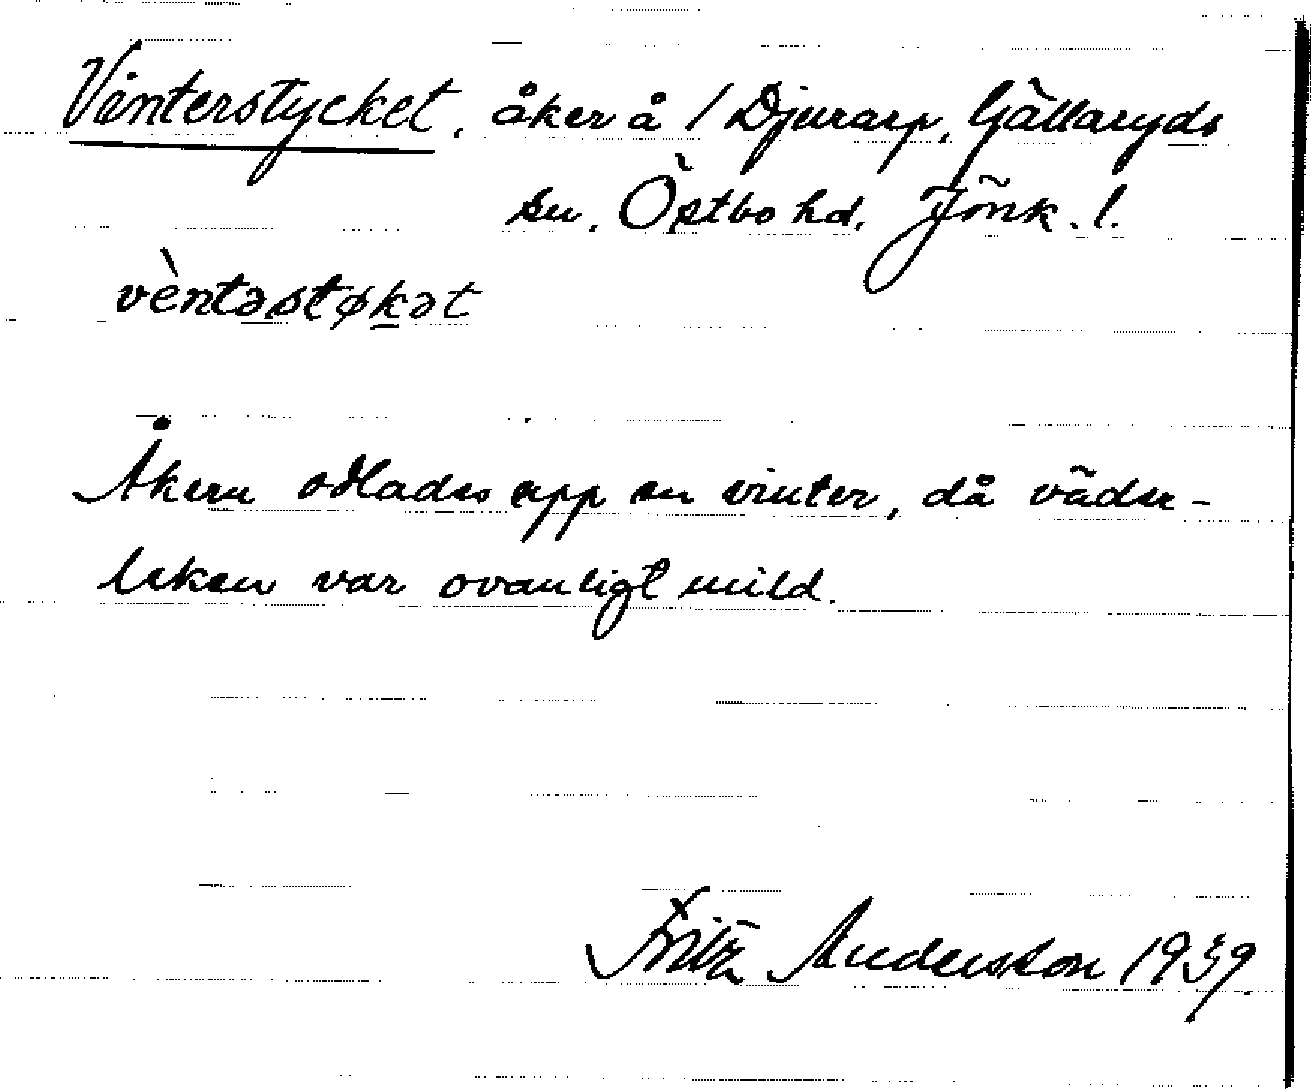 Vinterstycket, åker å / Djurarp, Gällaryds
sn. Östbo hd. Jönk. l.
vèntəstøkət
Åkern odlades upp en vinter, då väder-
leken var ovanligt mild.
Fritz Andersson 1939.